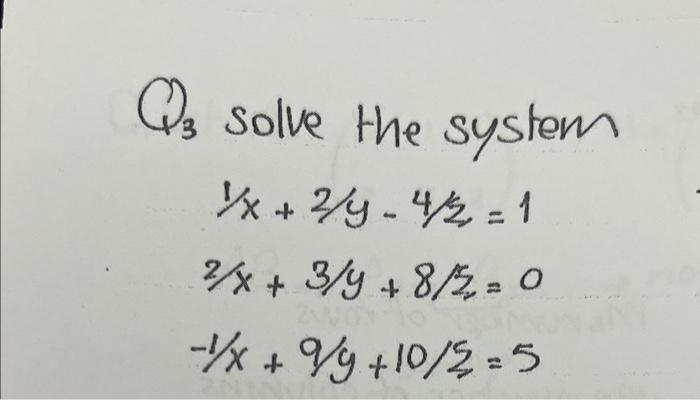 Q3 solve the system
1/x + 2/y - 4/z = 1
2/x + 3/y + 8/z = 0
-1/x + 9/y + 10/z = 5